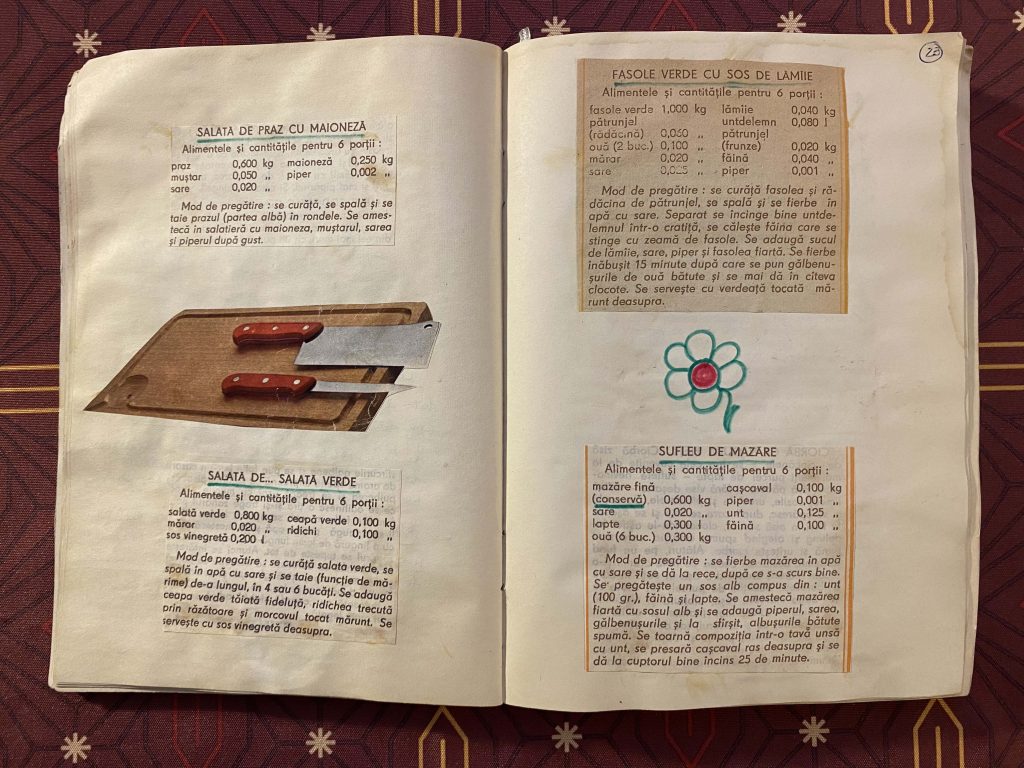 SALATA DE PRAZ CU MAIONEZĂ
Alimentele și cantitățile pentru 6 porții :
praz 0,600 kg maioneză 0,250 kg
muștar 0,050 „ piper 0,002 „
sare 0,020 „
Mod de pregătire : se curăță, se spală și se
taie prazul (partea albă) în rondele. Se ames-
tecă în salatieră cu maioneza, muștarul, sarea
și piperul după gust.
SALATA DE... SALATĂ VERDE
Alimentele și cantitățile pentru 6 porții :
salată verde 0,800 kg ceapă verde 0,100 kg
mărar 0,020 „ ridichi 0,100 „
sos vinegretă 0,200 l
Mod de pregătire : se curăță salata verde, se
spală în apă cu sare și se taie (funcție de mă-
rime) de-a lungul, în 4 sau 6 bucăți. Se adaugă
ceapa verde tăiată fideluță, ridichea trecută
prin răzătoare și morcovul tocat mărunt. Se
servește cu sos vinegretă deasupra.
22
FASOLE VERDE CU SOS DE LĂMÎIE
Alimentele și cantitățile pentru 6 porții :
fasole verde 1,000 kg lămîie 0,040 kg
pătrunjel untdelemn 0,080 l
(rădăcină) 0,060 „ pătrunjel
ouă (2 buc.) 0,100 „ (frunze) 0,020 kg
mărar 0,020 „ făină 0,040 „
sare „ piper 0,001 „
Mod de pregătire : se curăță fasolea și ră-
dăcina de pătrunjel, se spală și se fierbe în
apă cu sare. Separat se încinge bine untde-
lemnul într-o cratiță, se călește făina care se
stinge cu zeamă de fasole. Se adaugă sucul
de lămîie, sare, piper și fasolea fiartă. Se fierbe
înăbușit 15 minute după care se pun gălbenu-
șurile de ouă bătute și se mai dă în cîteva
clocote. Se servește cu verdeață tocată mă-
runt deasupra.
SUFLEU DE MAZĂRE
Alimentele și cantitățile pentru 6 porții :
mazăre fină cașcaval 0,100 kg
(conservă) 0,600 kg piper 0,001 „
sare 0,020 „ unt 0,125 „
lapte 0,300 l făină 0,100 „
ouă (6 buc.) 0,300 kg
Mod de pregătire : se fierbe mazărea în apă
cu sare și se dă la rece, după ce s-a scurs bine.
Se pregătește un sos alb compus din : unt
(100 gr.), făină și lapte. Se amestecă mazărea
fiartă cu sosul alb și se adaugă piperul, sarea,
gălbenușurile și la sfîrșit, albușurile bătute
spumă. Se toarnă compoziția într-o tavă unsă
cu unt, se presară cașcaval ras deasupra și se
dă la cuptorul bine încins 25 de minute.